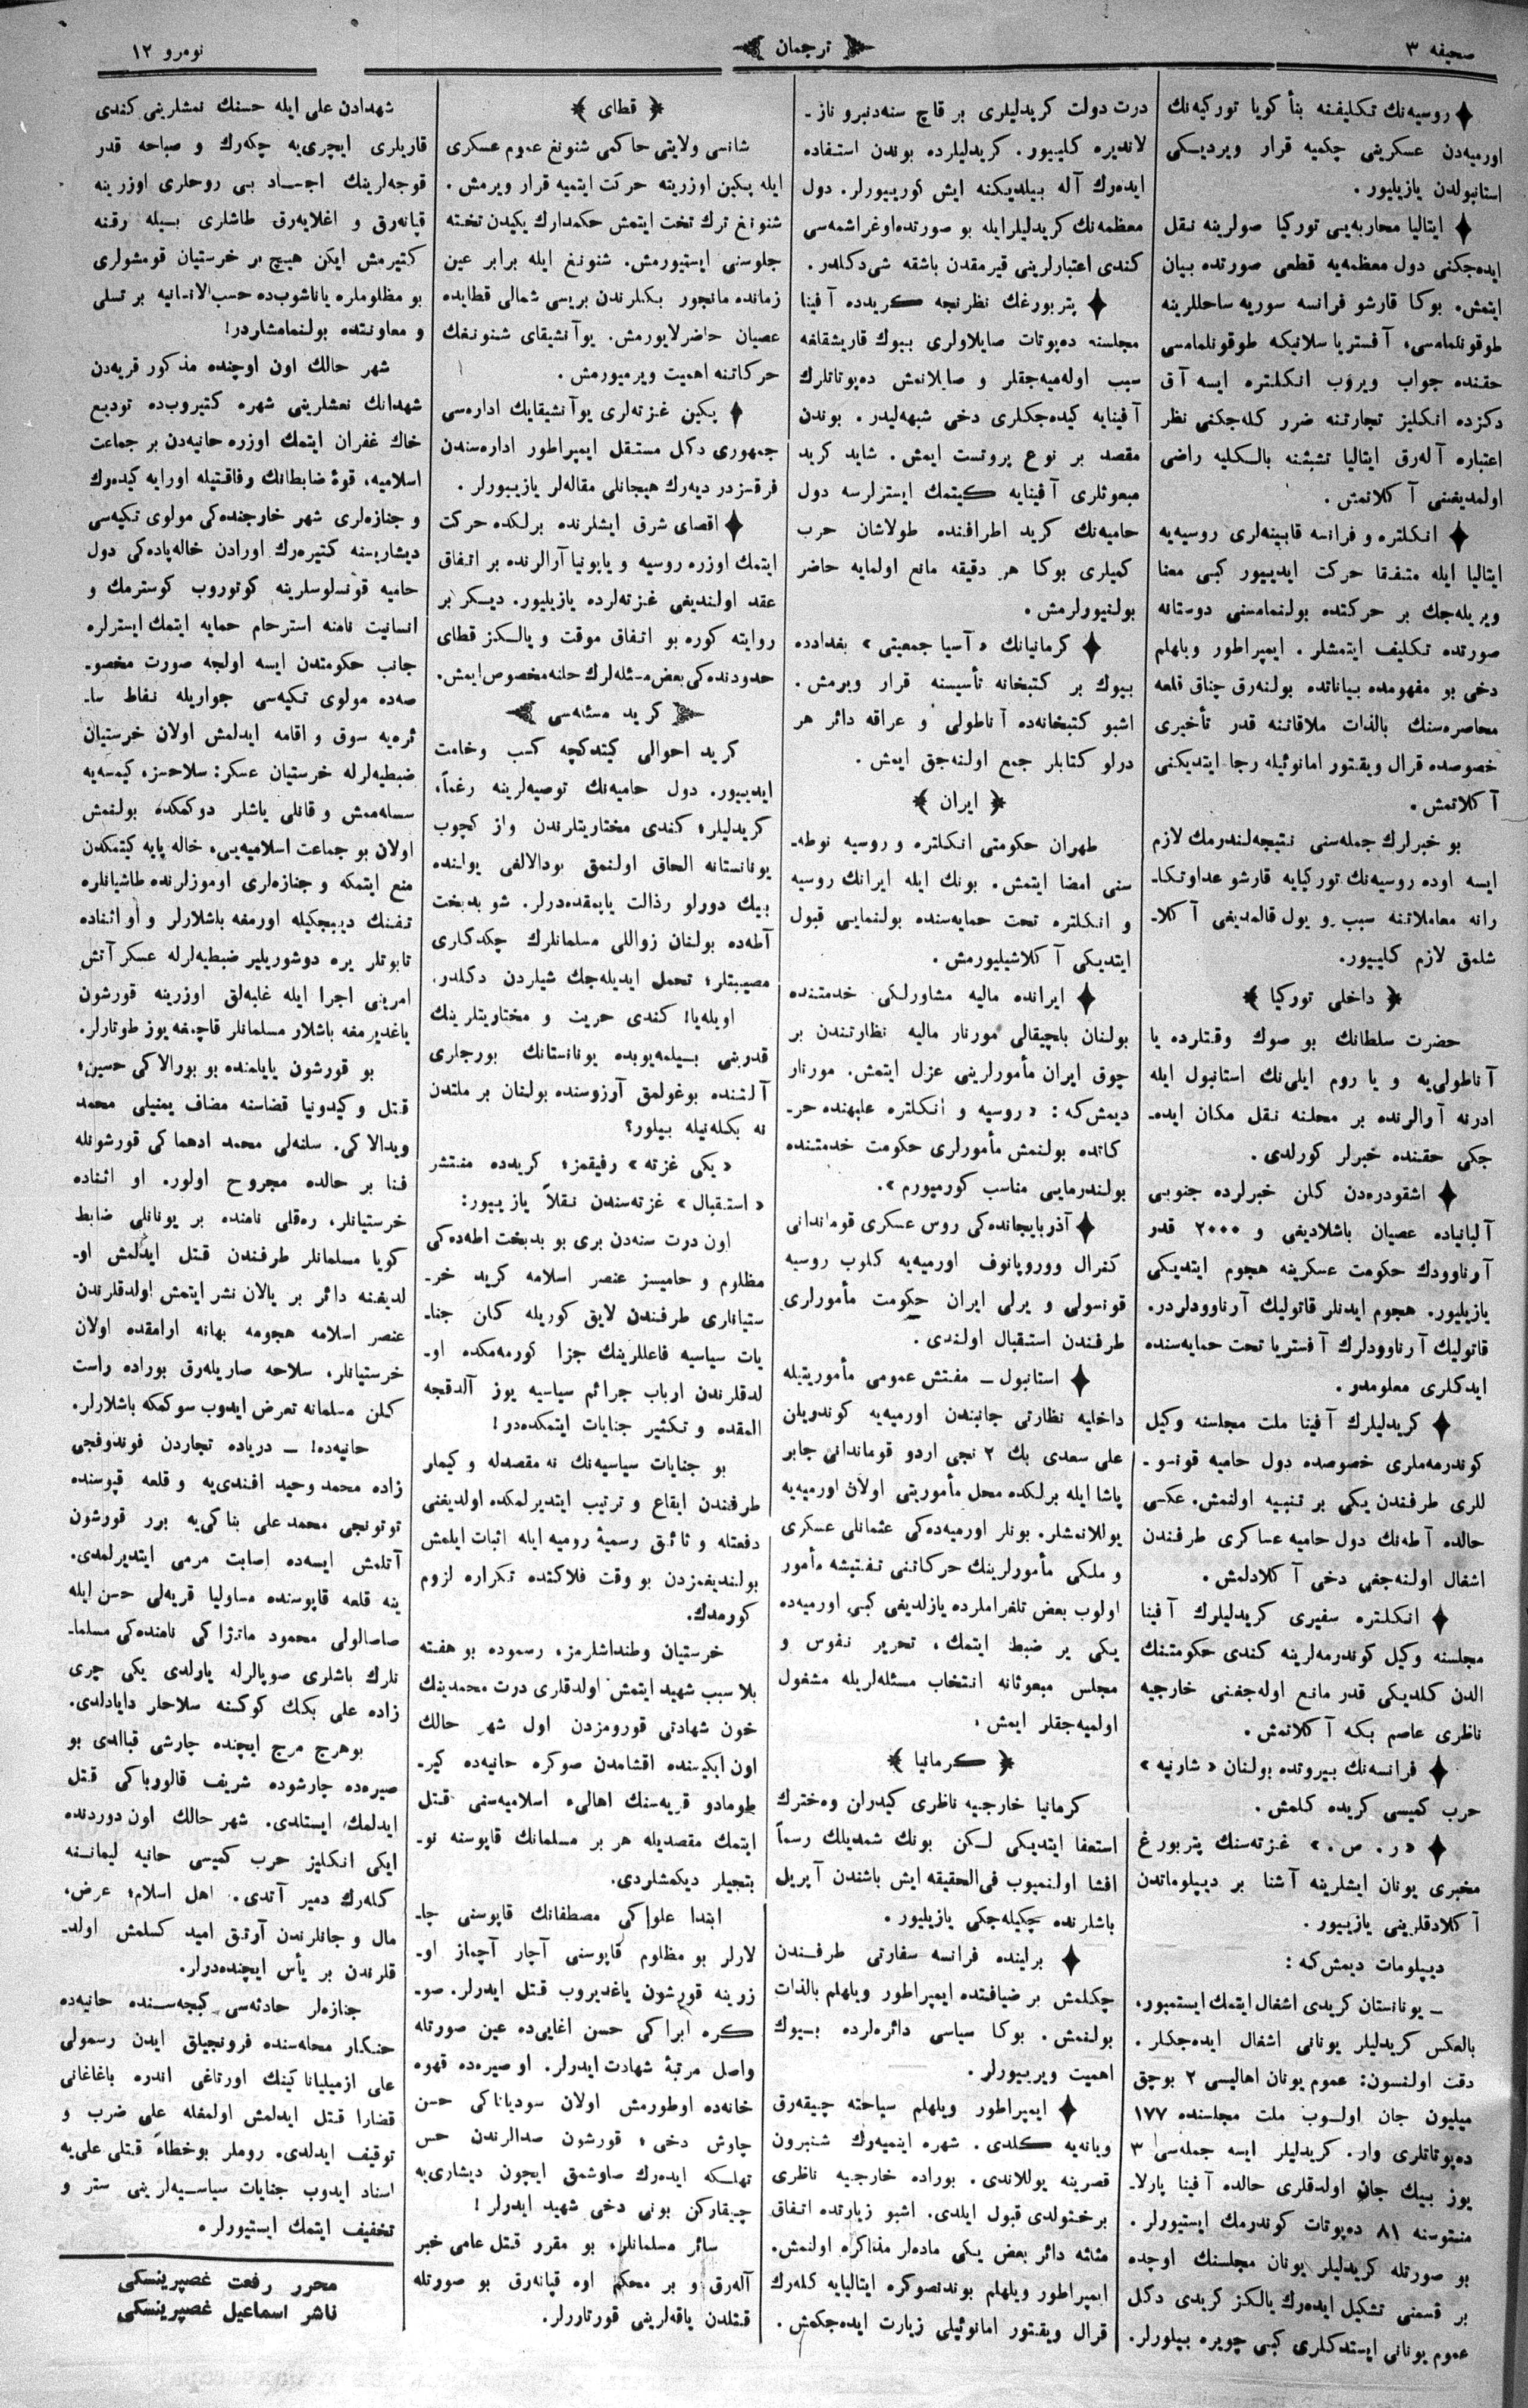 صحیفه ۳
ترجمان
نومرو ۱۲
روسیه‌نك تكلیفنه بنأ كویا توركیه‌نك
اورمیه‌دن عسكرینی چكمیه قرار ویردیـكی
استانبولدن یازیلیور.
ایتالیا محاربه‌یی توركیا صولرینه نقل
ایده‌جكنی دول معظمه‌یه قطعی صورتده بیان
ایتمش. بوكا قارشو فرانسه سوریه ساحللرینه
طوقونلمامسی، آفستریا سلانیكه طوقونلمامسی
حقنده جواب ویروب انكلتره ایسه آق
دكزده انكلیز تجارتنه ضرر كله‌جكنی نظر
اعتباره آله‌رق ایتالیا تشبثنه بالـكلیه راضی
اولمدیغنی آكلاتمش.
انكلتره و فرانسه قابینه‌لری روسیه‌یه
ایتالیا ایله متفقا حركت ایدییور كبی معنا
ویریله‌جك بر حركتده بولنمامسنی دوستانه
صورتده تكلیف ایتمشلر. ایمپراطور ویلهلم
دخی بو مفهومده بیاناتده بولنه‌رق چناق قلعه
محاصره‌سنك بالذات ملاقاتنه قدر تأخیری
خصوصده قرال ویقتور امانوئیله رجا ایتدیكنی
آكلاتمش.
بو خبرلرك جمله‌سنی نتیجه‌لندرمك لازم
ایسه اوده روسیه‌نك توركیایه قارشو عداوتكا-
رانه معاملاتنه سبب و یول قالمدیغی آكلا-
شلمق لازم كلییور.
داخلی توركیا
حضرت سلطانك بو صوك وقتلرده یا
آناطولی‌یه و یا روم ایلی‌نك استانبول ایله
ادرنه آرالرنده بر محلنه نقل مكان ایده-
جكی حقنده خبرلر كورلدی.
اشقودره‌دن كلن خبرلرده جنوبی
آلبانیاده عصیان باشلادیغی و ۲۰۰۰ قدر
آرناوودك حكومت عسكرینه هجوم ایتدیكی
یازیلیور. هجوم ایدنلر قاتولیك آرناوودلردر.
قاتولیك آرناوودلرك آفستریا تحت حمایه‌سنده
ایدكلری معلومدر.
كریدلیلرك آفینا ملت مجلسنه وكیل
كوندرمه‌ملری خصوصده دول حامیه قونسو-
للری طرفندن یكی بر تنبیه اولنمش. عكسی
حالده آطه‌نك دول حامیه عساكری طرفندن
اشغال اولنه‌جغی دخی آكلادلمش.
انكلتره سفیری كریدلیلرك آفینا
مجلسنه وكیل كوندرمه‌لرینه كندی حكومتنك
الدن كلدیكی قدر مانع اوله‌جغنی خارجیه
ناظری عاصم بكه آكلاتمش.
فرانسه‌نك بیروتده بولنان «شارنیه»
حرب كمیسی كریده كلمش.
«ر. ص.» غزته‌سنك پتربورغ
مخبری یونان ایشلرینه آشنا بر دیپلوماتدن
آكلادقلرینی یازییور.
دیپلومات دیمش‌كه:
— یونانستان كریدی اشغال ایتمك ایستمیور،
بالعكس كریدلیلر یونانی اشغال ایده‌جكلر.
دقت اولنسون: عموم یونان اهالیسی ۲ بوچق
میلیون جان اولـوب ملت مجلسنده ۱۷۷
ده‌پوتاتلری وار. كریدلیلر ایسه جمله‌سی ۳
یوز بیك جان اولدقلری حالده آفینا پارلا-
منتوسنه ۸۱ ده‌پوتات كوندرمك ایستیورلر.
بو صورتله كریدلیلر یونان مجلسنك اوچده
بر قسمنی تشكیل ایده‌رك یالكز كریدی دكل
عموم یونانی ایستدكلری كبی چویره بیلورلر.
درت دولت كریدلیلری بر قاچ سنه‌دنبرو ناز-
لاندیره كلییور. كریدلیلرده بوندن استفاده
ایده‌رك آله بیلدیكنه ایش كورییورلر. دول
معظمه‌نك كریدلیلرایله بو صورتده‌اوغراشمه‌سی
كندی اعتبارلرینی قیرمقدن باشقه شی‌دكلدر.
پتربورغك نظرنجه كریدده آفینا
مجلسنه ده‌پوتات صایلاولری بیوك قاریشقلغه
سبب اوله‌میه‌جقلر و صایلانمش ده‌پوتاتلرك
آفینایه كیده‌جكلری دخی شبهه‌لیدر. بوندن
مقصد بر نوع پروتست ایمش. شاید كرید
مبعوثلری آفینایه كیتمك ایسترلرسه دول
حامیه‌نك كرید اطرافنده طولاشان حرب
كمیلری بوكا هر دقیقه مانع اولمایه حاضر
بولنیورلرمش.
كرمانیانك «آسیا جمعیتی» بغدادده
بیوك بر كتبخانه تأسیسنه قرار ویرمش.
اشبو كتبخانه‌ده آناطولی و عراقه دائر هر
درلو كتابلر جمع اولنه‌جق ایمش.
ایران
طهران حكومتی انكلتره و روسیه نوطه-
سنی امضا ایتمش. بونك ایله ایرانك روسیه
و انكلتره تحت حمایه‌سنده بولنمایی قبول
ایتدیكی آكلاشیلیورمش.
ایرانده مالیه مشاورلكی خدمتنده
بولنان بلچیقالی مورنار مالیه نظارتندن بر
چوق ایران مأمورلرینی عزل ایتمش. مورنار
دیمش‌كه: «روسیه و انكلتره علیهنده حر-
كاتده بولنمش مأمورلری حكومت خدمتنده
بولندرمایی مناسب كورمیورم».
آذربایجانده‌كی روس عسكری قوماندانی
كنرال وورویانوف اورمیه‌یه كلوب روسیه
قونسولی و یرلی ایران حكومت مأمورلری
طرفندن استقبال اولندی.
استانبول — مفتش عمومی مأموریتیله
داخلیه نظارتی جانبندن اورمیه‌یه كوندریلن
علی سعدی بك ۲ نجی اردو قوماندانی جابر
پاشا ایله برلكده محل مأموریتی اولان اورمیه‌یه
یوللانمشلر. بونلر اورمیه‌ده‌كی عثمانلی عسكری
و ملكی مأمورلرینك حركاتنی تفتیشه مأمور
اولوب بعض تلغراملرده یازلدیغی كبی اورمیه‌ده
یكی یر ضبط ایتمك، تحریر نفوس و
مجلس مبعوثانه انتخاب مسئله‌لریله مشغول
اولمیه‌جقلر ایمش.
كرمانیا
كرمانیا خارجیه ناظری كیدران وه‌خترك
استعفا ایتدیكی لـكن بونك شمدیلك رسماً
افشا اولنمیوب فی‌الحقیقه ایش باشندن آپریل
باشلرنده چكیله‌جكی یازیلیور.
برلینده فرانسه سفارتی طرفـندن
چكلمش بر ضیافتده ایمپراطور ویلهلم بالذات
بولنمش. بوكا سیاسی دائره‌لرده بـیوك
اهمیت ویریبورلر.
ایمپراطور ویلهلم سیاحته چیقه‌رق
ویانه‌یه كلدی. شهره اینمیه‌رك شنبرون
قصرینه یوللاندی. بوراده خارجیه ناظری
برختولدی قبول ایلدی. اشبو زیارتده اتفاق
مثلثه دائر بعض یكی ماده‌لر مذاكره اولنمش.
ایمپراطور ویلهلم بوندنصوكره ایتالیایه كله‌رك
قرال ویقتور امانوئیلی زیارت ایده‌جكمش.
قطای
شانسی ولایتی حاكمی شنونغ عموم عسكری
ایله پكین اوزرینه حركت ایتمیه قرار ویرمش.
شنونغ ترك تخت ایتمش حكمدارك یكیدن تخته
جلوسنی ایستیورمش. شنونغ ایله برابر عین
زمانده مانجور بكلرندن بریسی شمالی قطایده
عصیان حاضرلایورمش. یوآنشیقای شنونغك
حركاتنه اهمیت ویرمیورمش.
پكین غزته‌لری یوآنشیقایك اداره‌سی
جمهوری دكل مستقل ایمپراطور اداره‌سندن
فرقسزدر دیه‌رك هیجانلی مقاله‌لر یازییورلر.
اقصای شرق ایشلرنده برلكده حركت
ایتمك اوزره روسیه و یاپونیا آرالرنده بر اتفاق
عقد اولندیغی غزته‌لرده یازیلیور. دیـكر بر
روایته كوره بو اتفاق موقت و یالـكز قطای
حدودنده‌كی بعض مسئله‌لرك حلنه مخصوص ایمش.
كرید مسئله‌سی
كرید احوالی كیتدكچه كسب وخامت
ایدییور. دول حامیه‌نك توصیه‌لرینه رغماً،
كریدلیلر؛ كندی مختاریتلرندن واز كچوب
یونانستانه الحاق اولنمق بودالالغی یولنده
بیك دورلو رذالت یاپمقده‌درلر. شو بدبخت
آطه‌ده بولنان زواللی مسلمانلرك چكدكلری
مصیبتلر؛ تحمل ایدیله‌جك شیلردن دكلدر.
اویله‌یا! كندی حریت و مختاریتلرینك
قدرینی بـیلمه‌یوبده یونانستانك بورجلری
آلتنده بوغولمق آرزوسنده بولنان بر ملتدن
نه بكله‌نیله بیلور؟
«یكی غزته» رفیقمز؛ كریدده منتشر
«استقبال» غزته‌سندن نقلاً یازییور:
اون درت سنه‌دن بری بو بدبخت اطه‌ده‌كی
مظلوم و حامیسز عنصر اسلامه كرید خر-
ستیانلری طرفندن لایق كوریله كلن جنا-
یات سیاسیه فاعللرینك جزا كورمه‌مكده او-
لدقلرندن ارباب جرائم سیاسیه یوز آلدقجه
المقده و تكثیر جنایات ایتمكده‌در!
بو جنایات سیاسیه‌نك نه مقصدله و كیملر
طرفندن ایقاع و ترتیب ایتدیرلمكده اولدیغنی
دفعتله و ثائق رسمیهٔ رومیه ایله اثبات ایلمش
بولندیغمزدن بو وقت فلاكتده تكراره لزوم
كورمدك.
خرستیان وطنداشلرمز، رسموده بو هفته
بلا سبب شهید ایتمش اولدقلری درت محمدینك
خون شهادتی قورومزدن اول شهر حالك
اون ایكیسنده اقشامدن صوكره حانیه‌ده كیر-
طومادو قریه‌سنك اهالیء اسلامیه‌سنی قتل
ایتمك مقصدیله هر بر مسلمانك قاپوسنه نو-
بتجیلر دیكمشلردی.
ابتدا علواكی مصطفانك قاپوسنی چا-
لارلر بو مظلوم قاپوسنی آچار آچماز او-
زرینه قورشون یاغدیروب قتل ایدرلر. صو-
كره ابراكی حسن اغایی‌ده عین صورتله
واصل مرتبهٔ شهادت ایدرلر. او صیره‌ده قهوه
خانه‌ده اوطورمش اولان سودباناكی حسن
چاوش دخی؛ قورشون صدالرندن حس
تهلـكه ایده‌رك صاوشمق ایچون دیشاری‌یه
چیقاركن بونی دخی شهید ایدرلر!
سائر مسلمانلر، بو مقرر قتل عامی خبر
آله‌رق و بر محكم اوه قپانه‌رق بو صورتله
قتلدن یاقه‌لرینی قورتاررلر.
شهدادن علی ایله حسنك نعشلرینی كندی
قاریلری ایچری‌یه چكه‌رك و صباحه قدر
قوجه‌لرینك اجساد بی روحلری اوزرینه
قپانه‌رق و اغلایه‌رق طاشلری بـیله رقته
كتیرمش ایكن هیچ بر خرستیان قومشولری
بو مظلوملره یاناشوب‌ده حسب‌الانسانیه بر تسلی
و معاونتده بولنمامشلردر!
شهر حالك اون اوچنده مذكور قریه‌دن
شهدانك نعشلرینی شهره كتیروب‌ده تودیع
خاك غفران ایتمك اوزره حانیه‌دن بر جماعت
اسلامیه، قوهٔ ضابطانك رفاقتیله اورایه كیده‌رك
و جنازه‌لری شهر خارجنده‌كی مولوی تكیه‌سی
دیشاریسنه كتیره‌رك اورادن خاله‌پاده‌كی دول
حامیه قونسلوسلرینه كوتوروب كوسترمك و
انسانیت نامنه استرحام حمایه ایتمك ایسترلره
جانب حكومتدن ایسه اولجه صورت مخصو-
صه‌ده مولوی تكیه‌سی جواریله نقاط سا-
ئره‌یه سوق و اقامه ایدلمش اولان خرستیان
ضبطیه‌لرله خرستیان عسكر؛ سلاحسز، كیمسه‌یه
اولان بو جماعت اسلامیه‌یی، خاله پایه كیتمكدن
منع ایتمكه و جنازه‌لری اوموزلرنده طاشیانلره
تفنك دیپچكیله اورمغه باشلارلر و او اثناده
تابوتلر یره دوشوریلیر ضبطیه‌لرله عسكر آتش
امرینی اجرا ایله غلبه‌لق اوزرینه قورشون
یاغدیرمغه باشلار مسلمانلر قاچمغه یوز طوتارلر.
بو قورشون یایلمنده بو بورالاكی حسین؛
قتل و كیدونیا قضاسنه مضاف یمنیلی محمد
ویدالاكی. سلنه‌لی محمد ادهماكی قورشونله
فنا بر حالده مجروح اولور. او اثناده
خرستیانلر، ره‌قلی نامنده بر یونانلی ضابط
كویا مسلمانلر طرفندن قتل ایدلمش او-
لدیغنه دائر بر یالان نشر ایتمش اولدقلرندن
عنصر اسلامه هجومه بهانه ارامقده اولان
خرستیانلر، سلاحه صاریله‌رق بوراده راست
كلن مسلمانه تعرض ایدوب سوكمكه باشلارلر.
حانیه‌ده! — دریاده تجاردن فوندوقجی
زاده محمد وحید افندی‌یه و قلعه قپوسنده
توتونجی محمد علی بناكی‌یه برر قورشون
آتلمش ایسه‌ده اصابت مرمی ایتدیرلمدی.
ینه قلعه قاپوسنده مساولیا قریه‌لی حسن ایله
صاصالولی محمود مانژاكی نامنده‌كی مسلما-
نلرك باشلری صوپالرله یارلدی یكی چری
زاده علی بكك كوكسنه سلاحلر دایادلدی.
بوهرج مرج ایچنده چارشی قپاالدی بو
صیره‌ده چارشوده شریف قالورباكی قتل
ایدلمك ایستلدی. شهر حالك اون دوردنده
ایكی انكلیز حرب كمیسی حانیه لیمانـنه
كله‌رك دمیر آتدی. اهل اسلام؛ عرض،
مال و جانلرندن آرتق امید كسلمش اولد-
قلرندن بر یأس ایچنده‌درلر.
جنازه‌لر حادثه‌سی كیجه‌سـنده حانیه‌ده
حنكار محله‌سنده فرونجیلق ایدن رسمولی
علی ازمیلیاناكینك اورتاغی اندره باغاغانی
قضارا قتل ایدلمش اولمغله علی ضرب و
توقیف ایدلدی. روملر بوخطاءً قتلی علی‌یه
اسناد ایدوب جنایات سیاسـیه‌لرینی ستر و
تخفیف ایتمك ایستیورلر.
محرر رفعت غصپرینسكی
ناشر اسماعیل غصپرینسكی